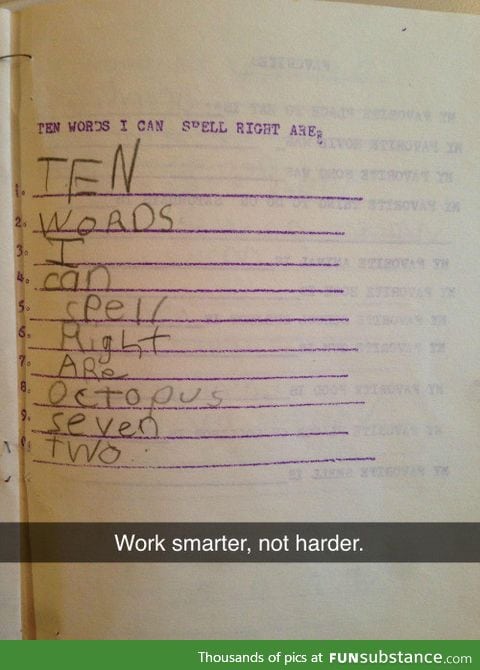 TEN WORDS I CAN SPELL RIGHT ARE:
1. TEN
2. WORDS
3. I
4. can
5. spell
6. Right
7. ARe
8. Octopus
9. seven
0. two
Work smarter, not harder.
Thousands of pics at FUNsubstance.com